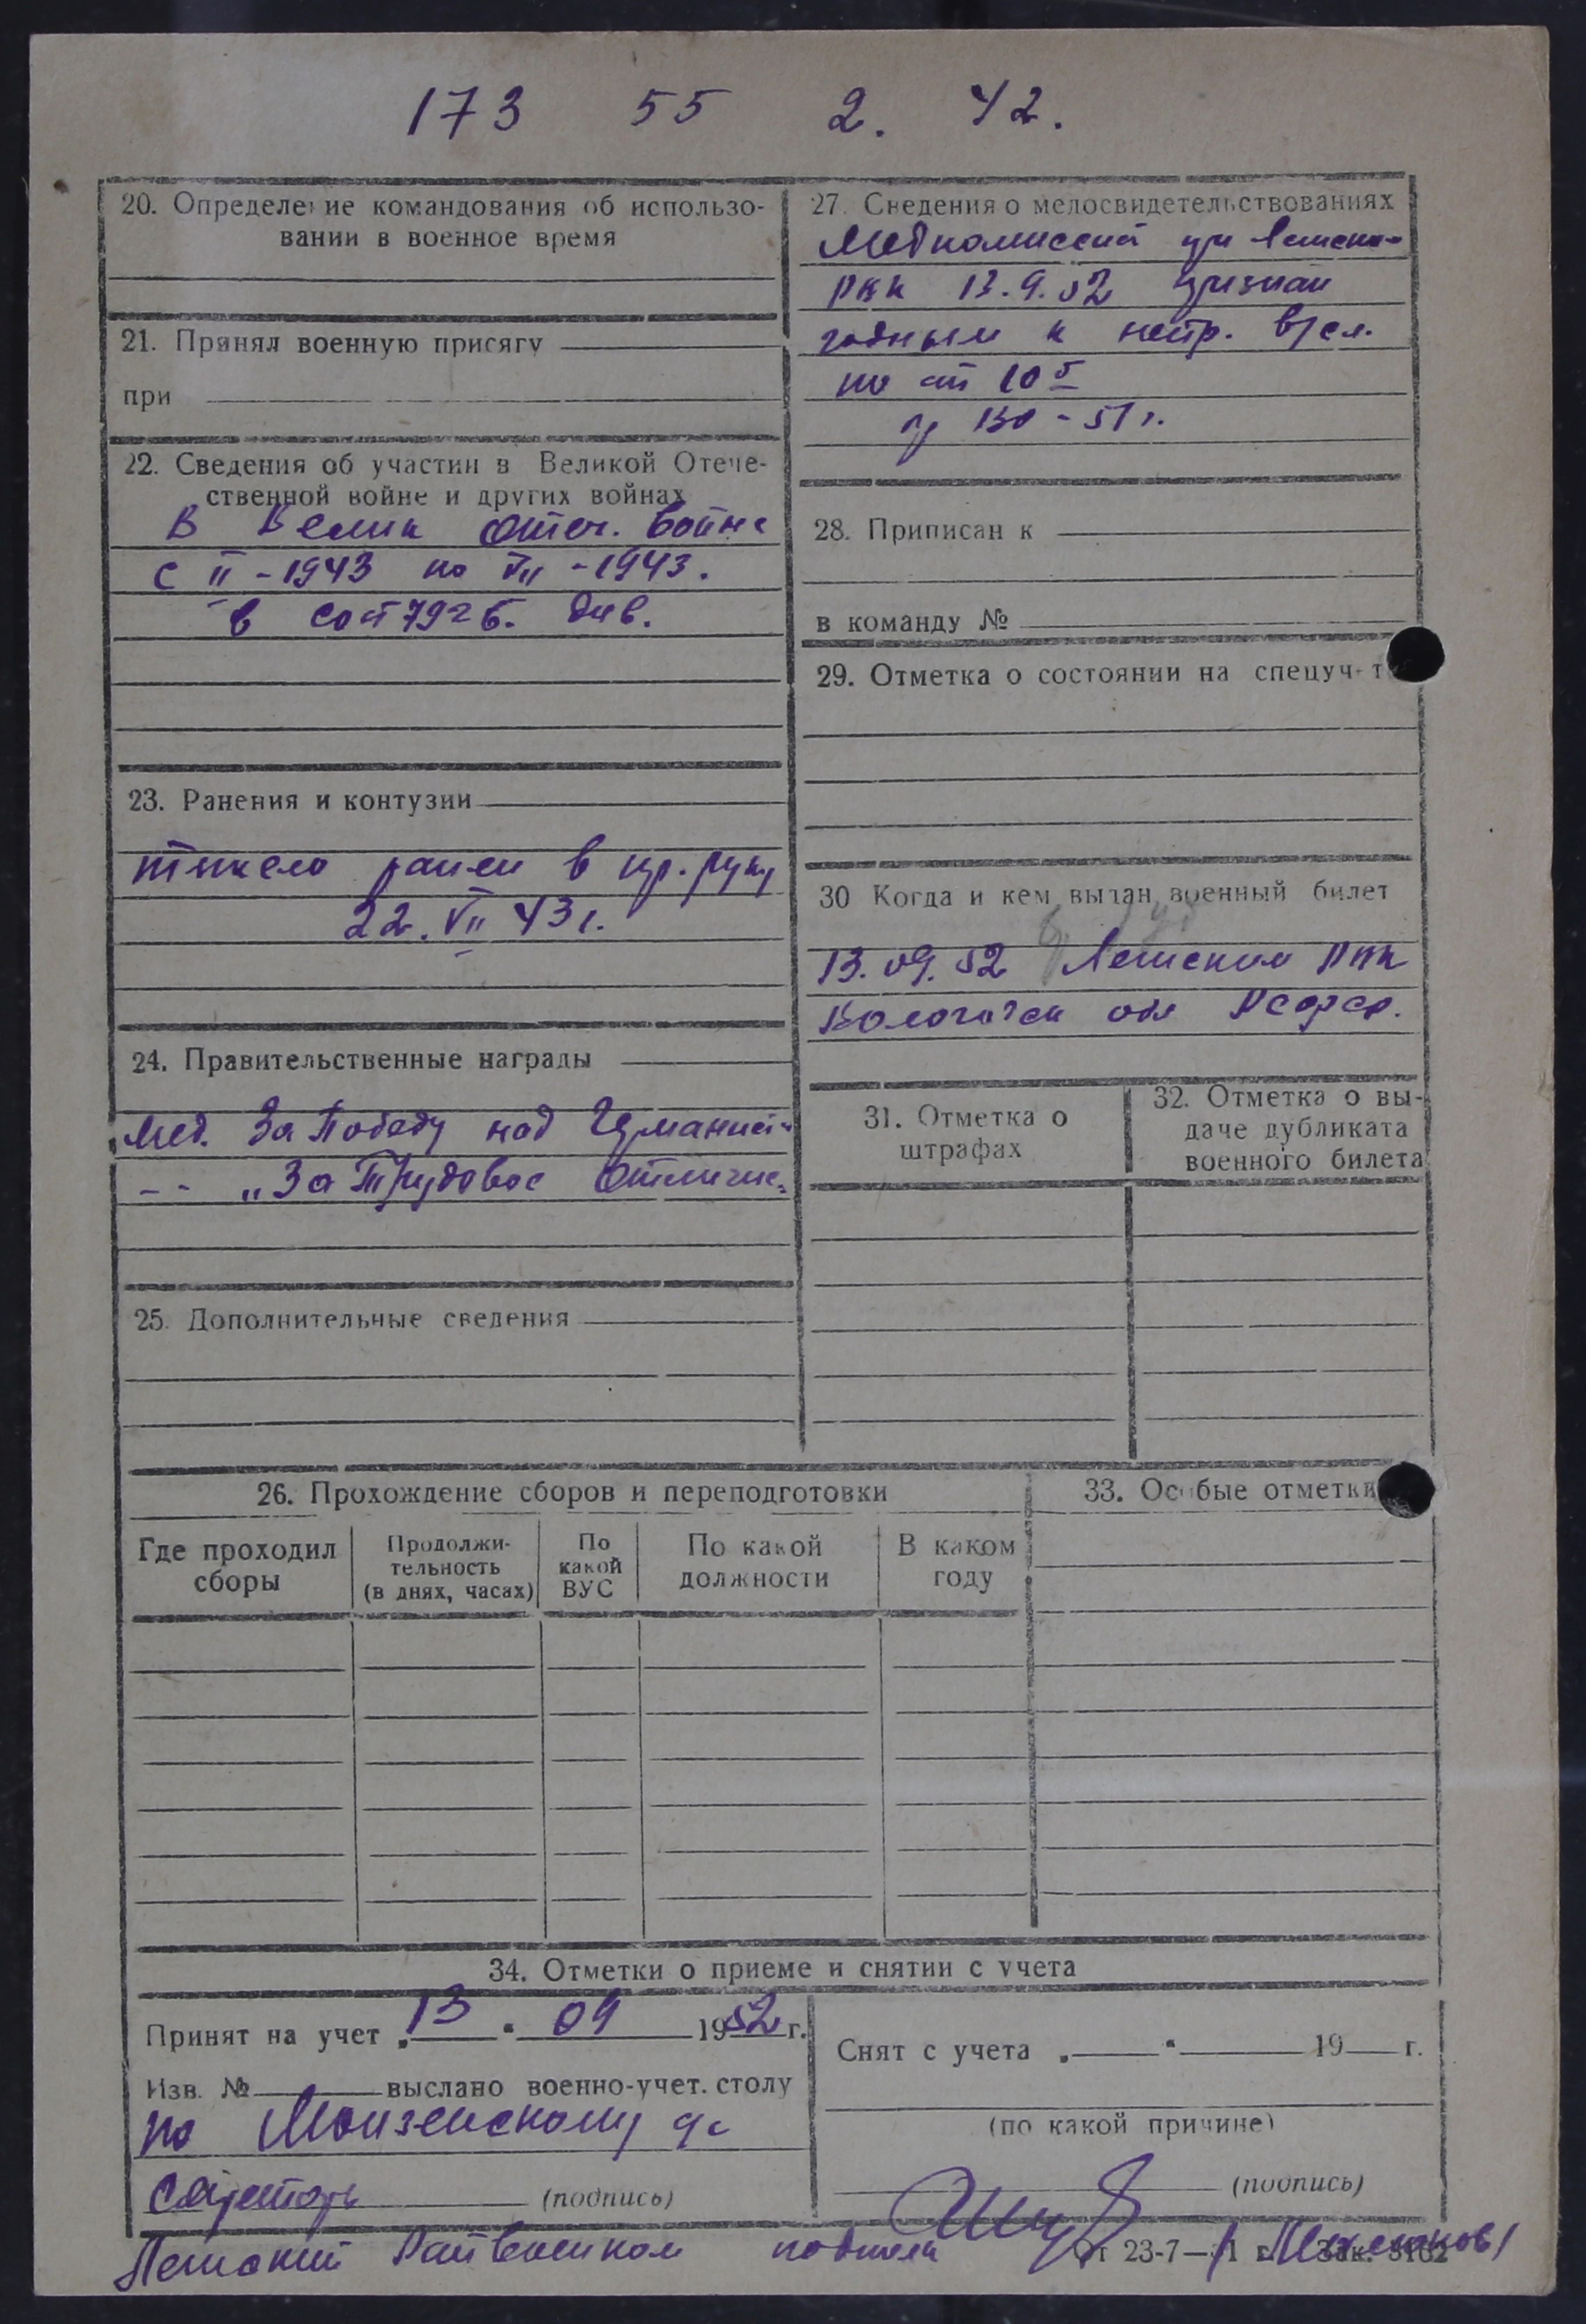 173 55 2. 42.
20. Определение командования об использо-
вании в военное время
21. Принял военную присягу
при
22. Сведения об участии в Великой Отече-
ственной войне и других войнах
В Велик Отеч. войне
с II - 1943 по VII - 1943.
в сост 79 г б. див.
23. Ранения и контузии
тяжело ранен в пр. руку
22. VII 43 г.
24. Правительственные награды
Мед. За Победу над Германией
-- „За Трудовое Отличие"
25. Дополнительные сведения
27. Сведения о медосвидетельствованиях
Медкомиссией при Лешско-
РВК 13.9.52 признан
годным к нестр. в/сл.
по ст 10 5
пр 130 - 51 г.
28. Приписан к
в команду №
29. Отметка о состоянии на спецуч-т
30 Когда и кем выдан военный билет
13.09.52 Лешским РВК
Вологодск обл РСФСР.
31. Отметка о
штрафах
32. Отметка о вы-
даче дубликата
военного билета
26. Прохождение сборов и переподготовки
Где проходил
сборы
Продолжи-
тельность
(в днях, часах)
По
какой
ВУС
По какой
должности
В каком
году
33. Особые отметки
34. Отметки о приеме и снятии с учета
Принят на учет „13" 09 1952 г.
Изв. № выслано военно-учет. столу
по Монзенскому
(подпись)
Снят с учета „ " 19 г.
(по какой причине)
(подпись)
Райвоенком
от 23-7—51 г. Зак. 3162